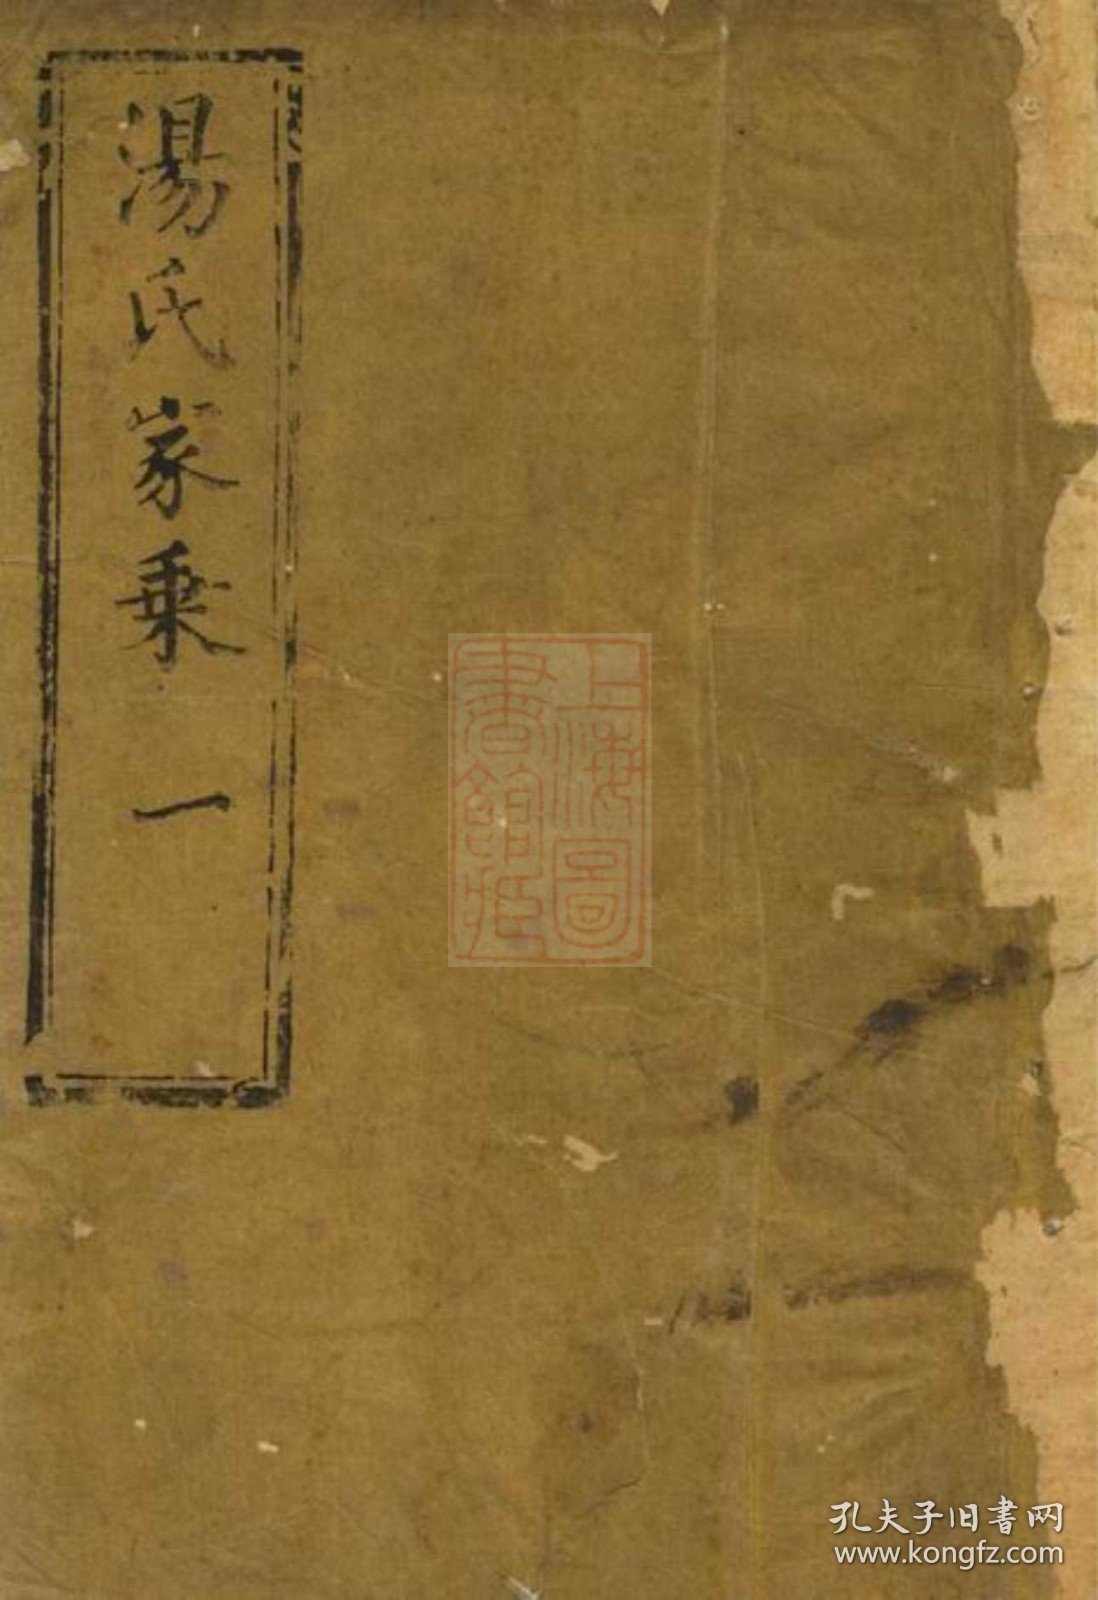 湯氏家乗 一
上海圖
書館藏
孔夫子旧書网
www.kongfz.com